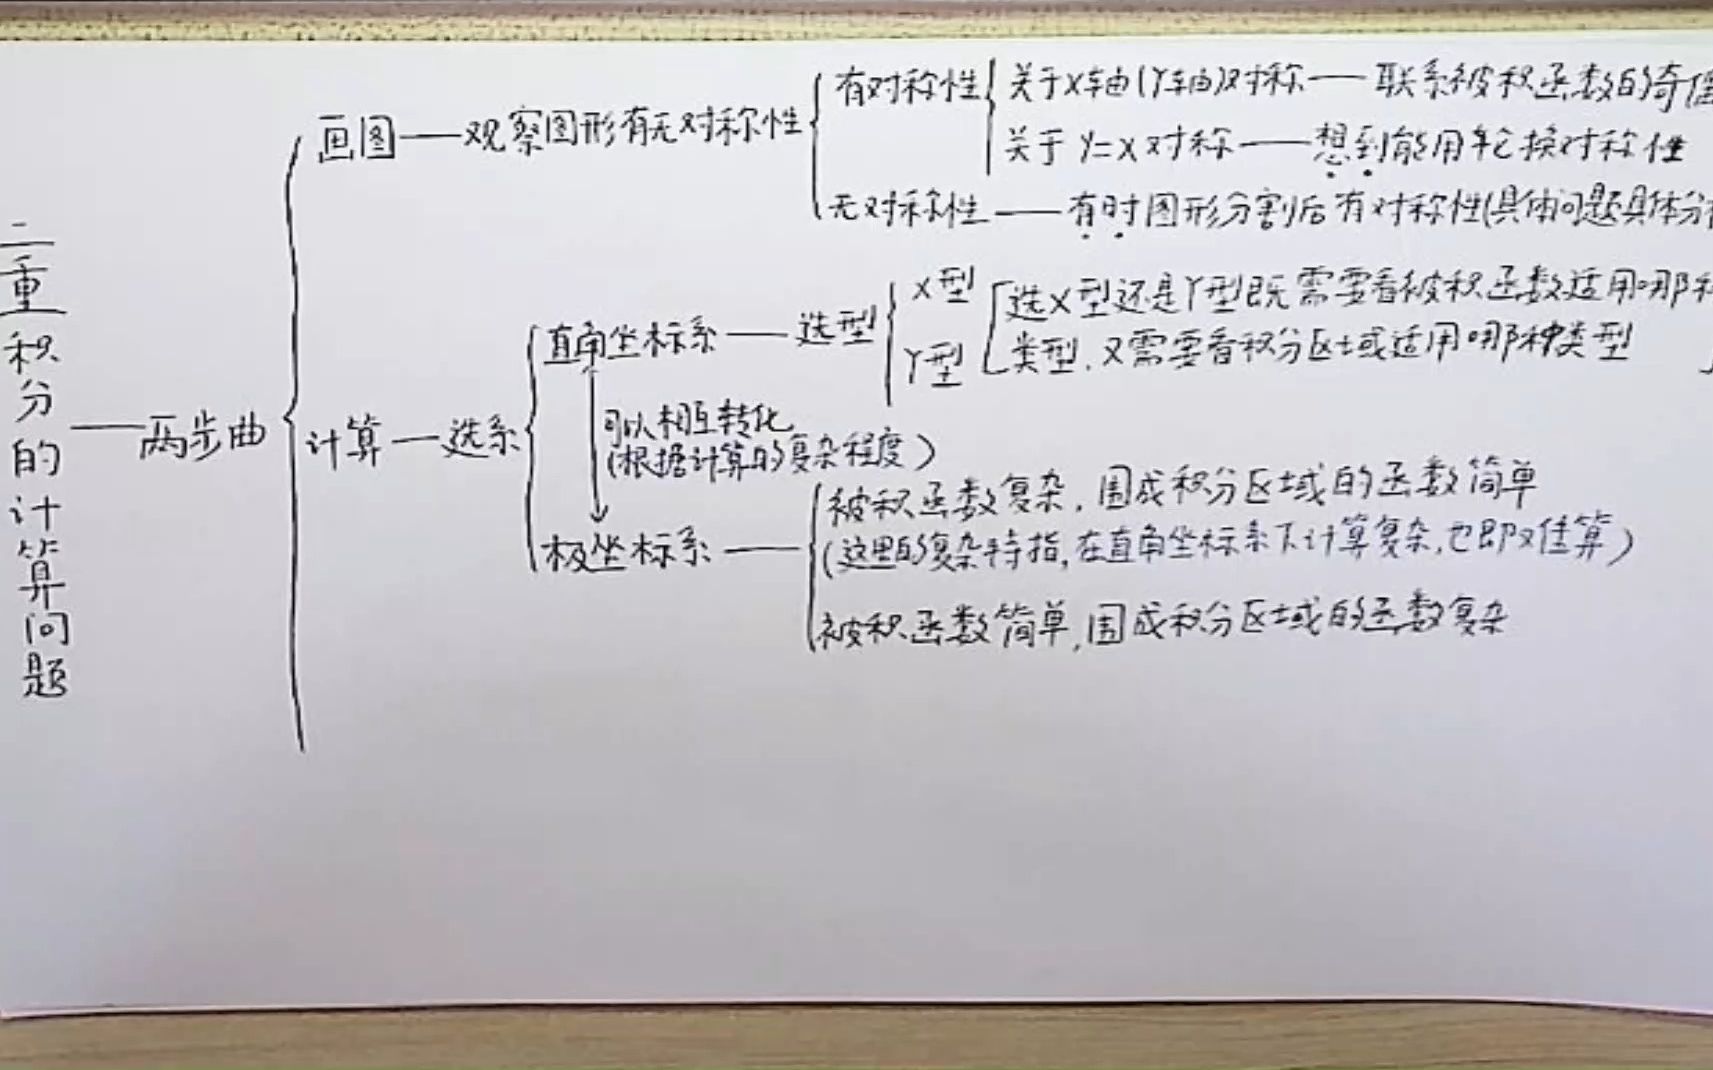 二重积分的计算问题
两步曲
画图——观察图形有无对称性
有对称性
关于X轴(Y轴)对称——联系被积函数的奇偶
关于Y=X对称——想到能用轮换对称性
无对称性——有时图形分割后有对称性(具体问题具体分
计算—选系
直角坐标系——选型
X型
Y型
选X型还是Y型既需要看被积函数适用哪种
类型,又需要看积分区域适用哪种类型
可以相互转化
(根据计算的复杂程度)
极坐标系——
被积函数复杂,围成积分区域的函数简单
(这里的复杂特指,在直角坐标系下计算复杂,也即难算)
被积函数简单,围成积分区域的函数复杂